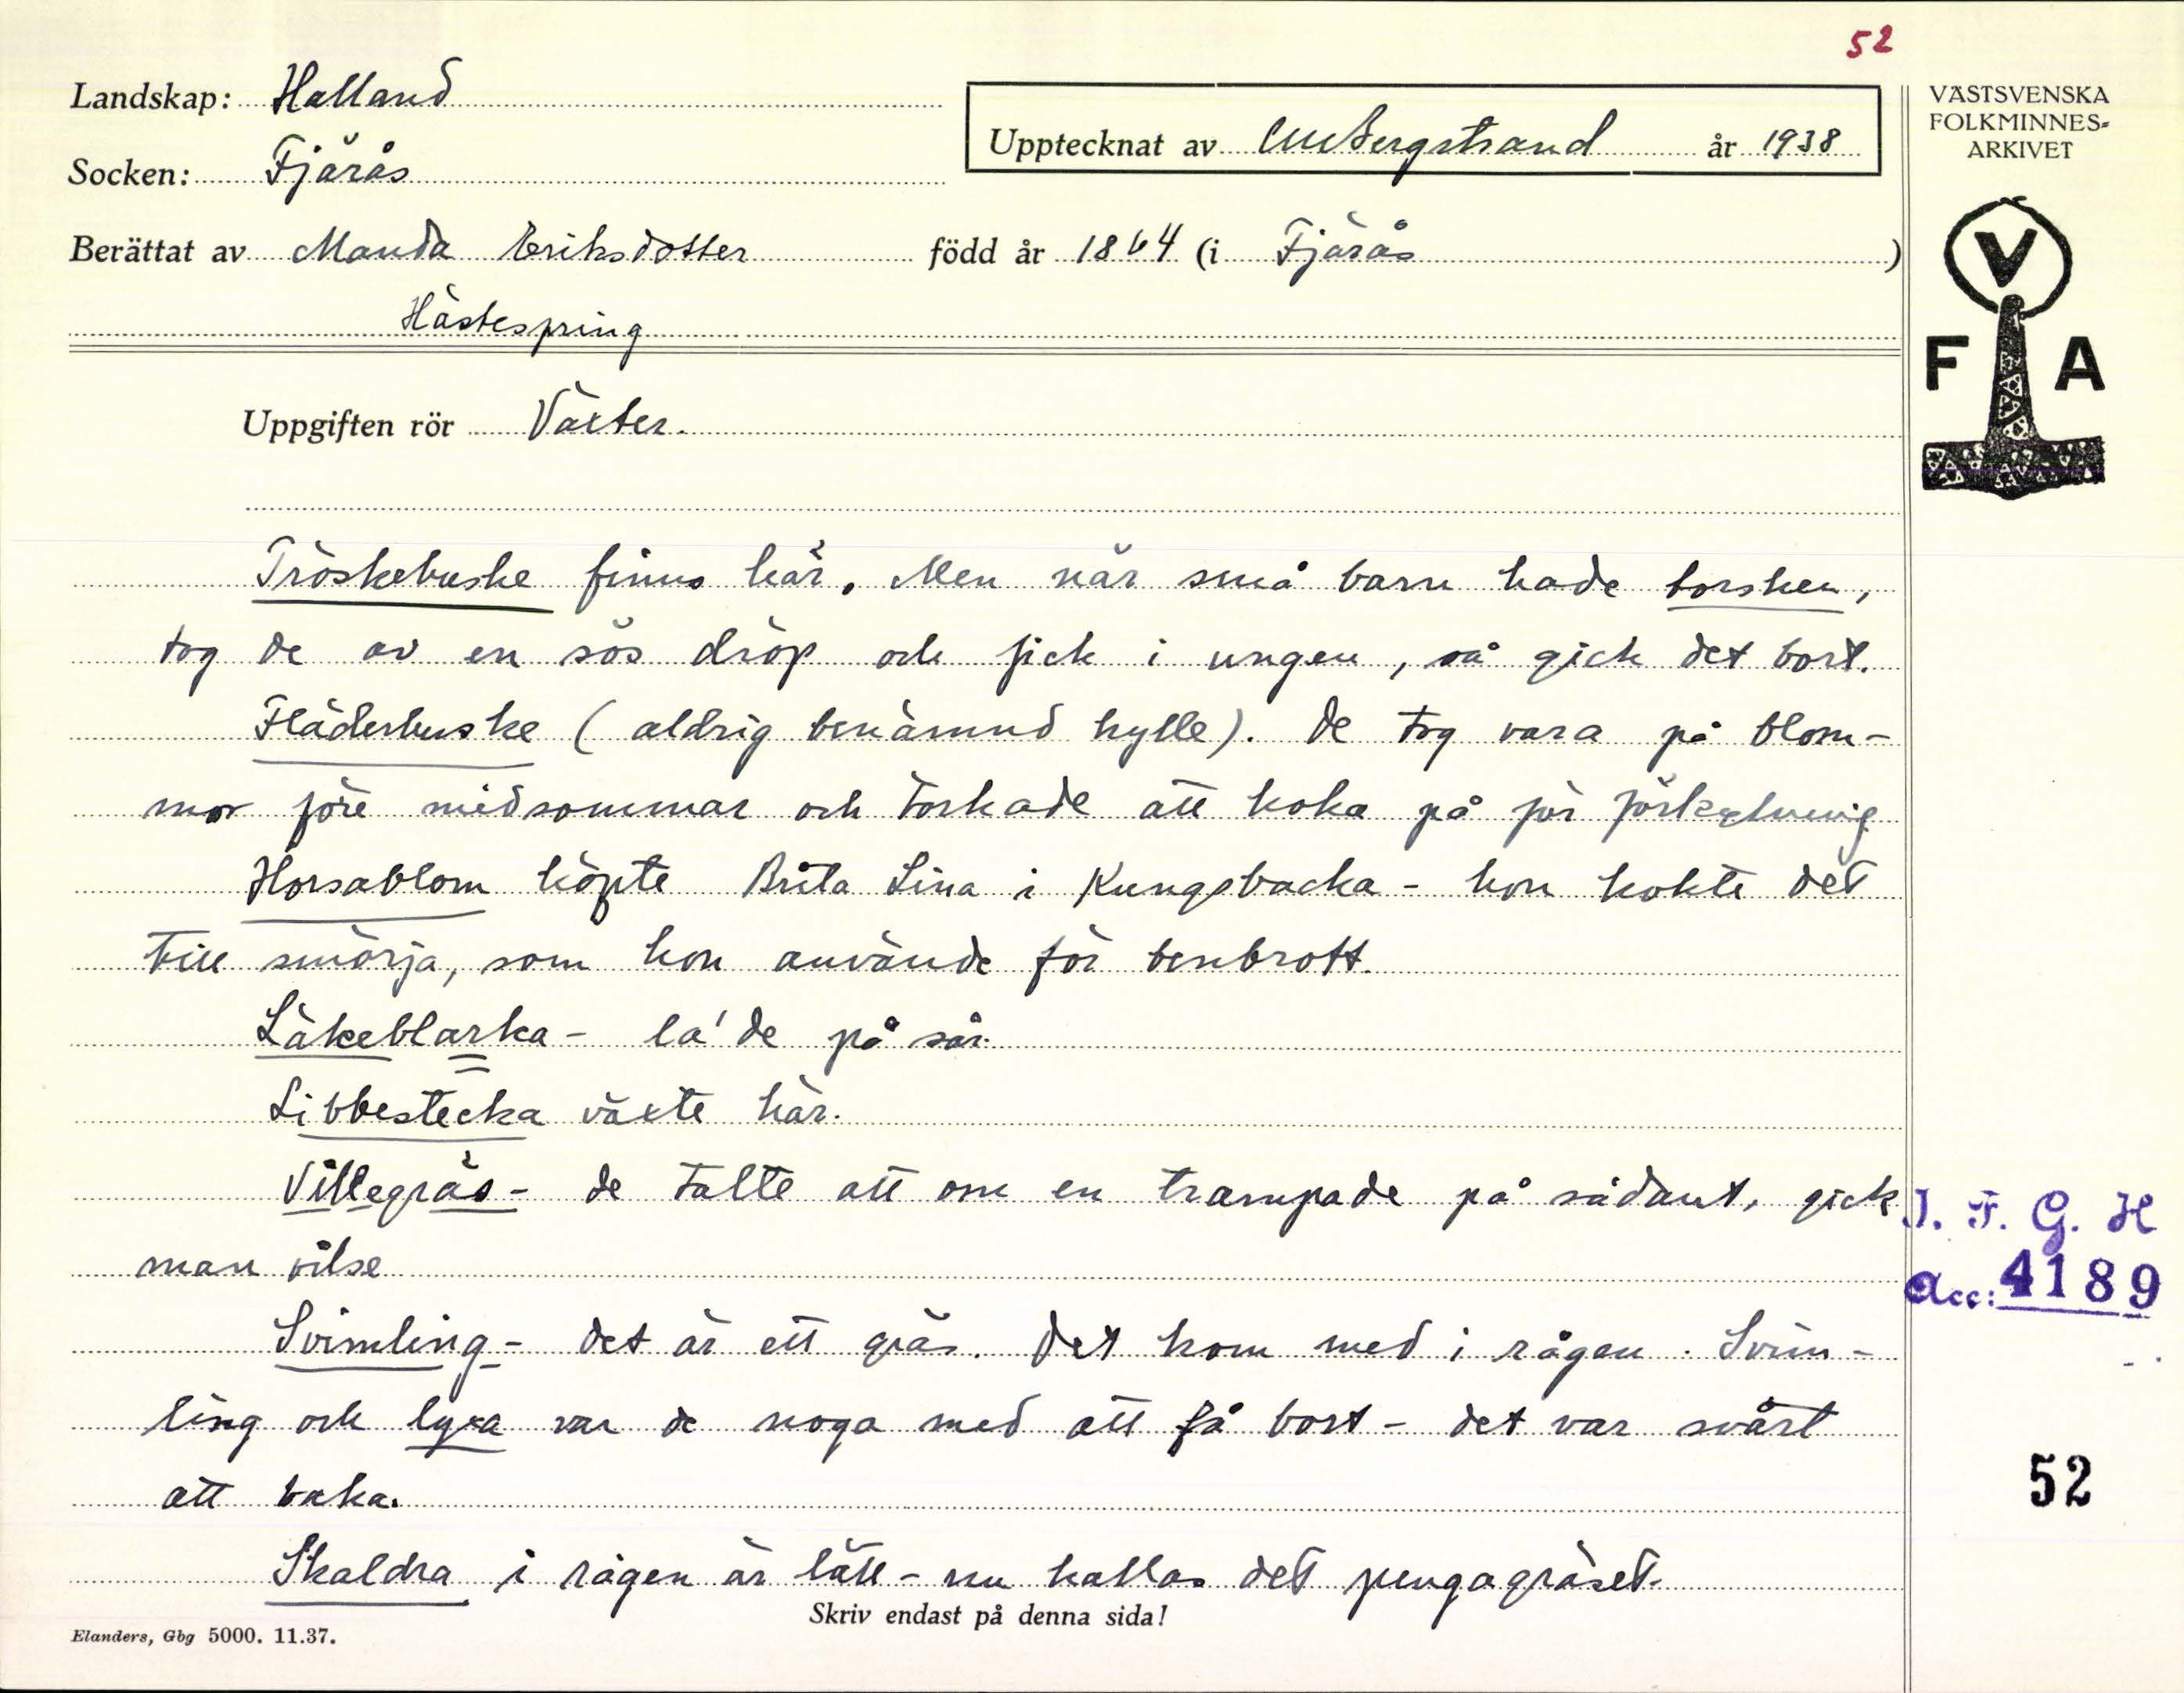 52
Landskap: Halland
Upptecknat av CMBergstrand år 1938
VÄSTSVENSKA
FOLKMINNES-
ARKIVET
Socken: Fjärås
Berättat av Manda Eriksdotter född år 1864 (i Fjärås )
Hästespring
V
F A
Uppgiften rör Växter.
Tröskebuske finns här. Men när små barn hade torsken,
tog de av en sös dröp och fick i ungen, så gick det bort.
Fläderbuske (aldrig benämnd hylle). De tog vara på blom-
mor före midsommar och torkade att koka på för förkylning
Horsablom köpte Brita Lina i Kungsbacka - hon kokte det
till smörja, som hon använde för benbrott.
Läkeblarka - la' de på sår.
Libbestecka växte här.
Villegräs - de talte att om en trampade på sådant, gick
man vilse
Svimling - det är ett gräs. Det kom med i rågen. Svim-
ling och lyxa var de noga med att få bort - det var svårt
att baka.
Skaldra i rågen är lätt - nu kallas det pengagräset.
Skriv endast på denna sida!
Elanders, Gbg 5000. 11.37.
I. F. G. H
Acc: 4189
52